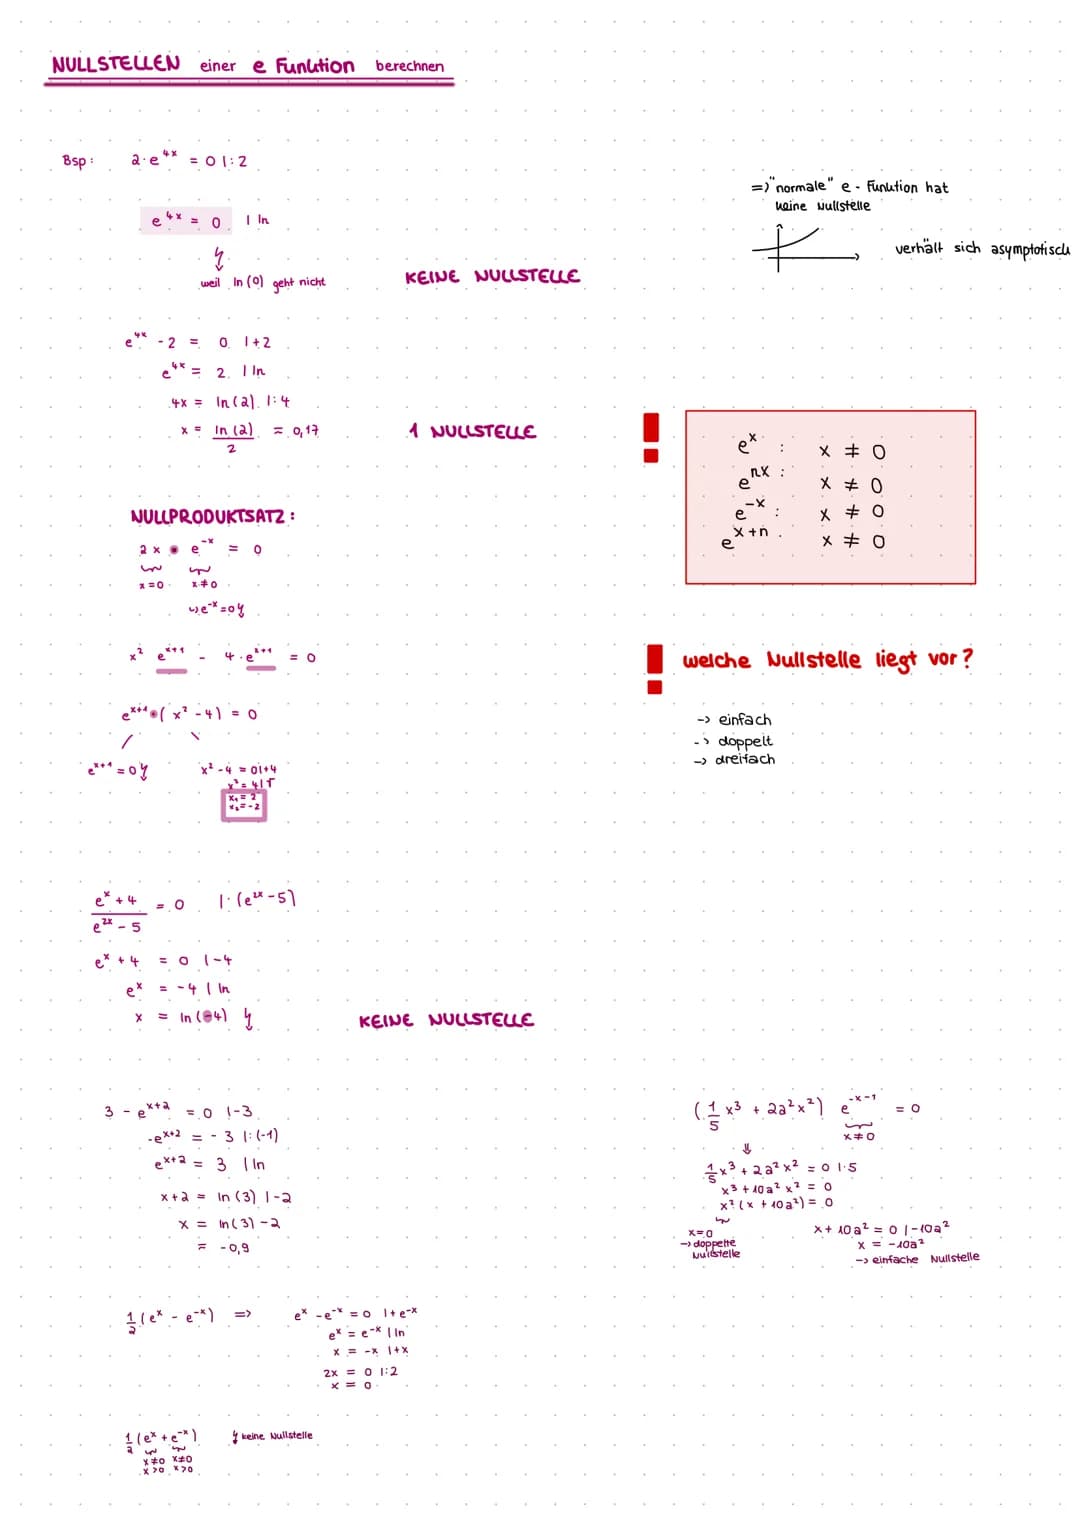 NULLSTELLEN einer e Funktion berechnen
Bsp: 2·e^4x = 0 |:2
e^4x = 0 | ln
↯
weil ln(0) geht nicht
KEINE NULLSTELLE
=> "normale" e - Funktion hat
keine Nullstelle
verhält sich asymptotisch
e^4x - 2 = 0 |+2
e^4x = 2 | ln
4x = ln(2) |:4
x = ln(2)/2 = 0,17
1 NULLSTELLE
!
e^x : x ≠ 0
e^nx : x ≠ 0
e^-x : x ≠ 0
e^x+n : x ≠ 0
NULLPRODUKTSATZ:
2x • e^-x = 0
x=0 x≠0
↳ e^-x = 0 ↯
x² e^x+1 - 4·e^x+1 = 0
e^x+1 • (x² - 4) = 0
e^x+1 = 0 ↯
x² - 4 = 0 |+4
x² = 4 |√
x₁ = 2
x₂ = -2
! welche Nullstelle liegt vor?
-> einfach
-> doppelt
-> dreifach
(e^x + 4)/(e^2x - 5) = 0 |·(e^2x - 5)
e^x + 4 = 0 |-4
e^x = -4 | ln
x = ln(-4) ↯
KEINE NULLSTELLE
3 - e^x+2 = 0 |-3
-e^x+2 = -3 |:(-1)
e^x+2 = 3 | ln
x+2 = ln(3) |-2
x = ln(3) - 2
= -0,9
(1/5 x³ + 2a²x²) e^-x-1 = 0
x≠0
⇓
1/5 x³ + 2a²x² = 0 |·5
x³ + 10a²x² = 0
x²(x + 10a²) = 0
x=0
-> doppelte
Nullstelle
x + 10a² = 0 |-10a²
x = -10a²
-> einfache Nullstelle
1/2 (e^x - e^-x) =>
e^x - e^-x = 0 |+e^-x
e^x = e^-x | ln
x = -x |+x
2x = 0 |:2
x = 0
1/2 (e^x + e^-x) ↯ keine Nullstelle
x≠0 x≠0
x>0 x>0